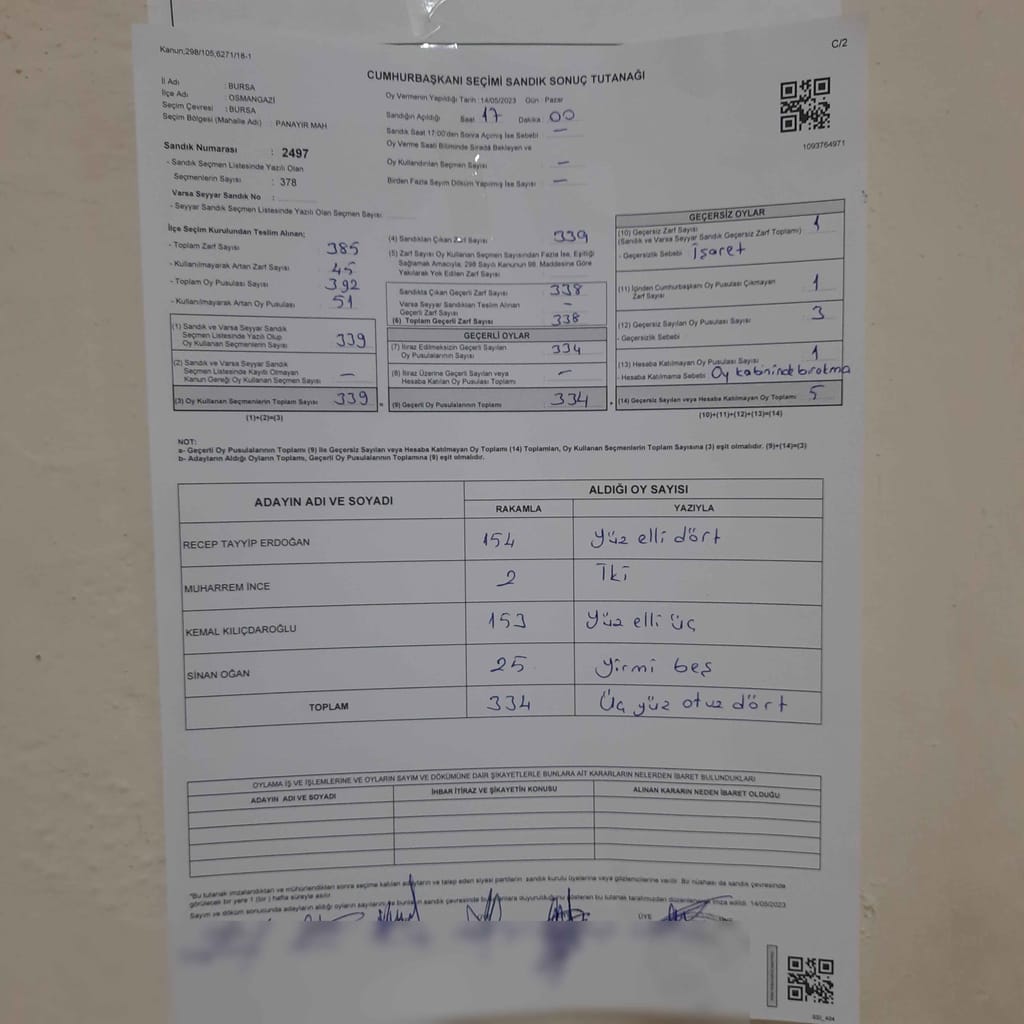 Kanun;298/105,6271/18-1
C/2
CUMHURBAŞKANI SEÇİMİ SANDIK SONUÇ TUTANAĞI
İl Adı : BURSA
İlçe Adı : OSMANGAZİ
Seçim Çevresi : BURSA
Seçim Bölgesi (Mahalle Adı) : PANAYIR MAH
Sandık Numarası : 2497
- Sandık Seçmen Listesinde Yazılı Olan
Seçmenlerin Sayısı : 378
Varsa Seyyar Sandık No :
- Seyyar Sandık Seçmen Listesinde Yazılı Olan Seçmen Sayısı
Oy Vermenin Yapıldığı Tarih : 14/05/2023 Gün : Pazar
Sandığın Açıldığı Saat 17 Dakika 00
Sandık Saat 17:00'den Sonra Açılmış İse Sebebi —
Oy Verme Saati Bitiminde Sırada Bekleyen ve
Oy Kullandırılan Seçmen Sayısı —
Birden Fazla Sayım Döküm Yapılmış İse Sayısı —
1093764971
İlçe Seçim Kurulundan Teslim Alınan;
- Toplam Zarf Sayısı 385
- Kullanılmayarak Artan Zarf Sayısı 45
- Toplam Oy Pusulası Sayısı 392
- Kullanılmayarak Artan Oy Pusulası 51
(1) Sandık ve Varsa Seyyar Sandık
Seçmen Listesinde Yazılı Olup
Oy Kullanan Seçmenlerin Sayısı 339
(2) Sandık ve Varsa Seyyar Sandık
Seçmen Listesinde Kayıtlı Olmayan
Kanun Gereği Oy Kullanan Seçmen Sayısı —
(3) Oy Kullanan Seçmenlerin Toplam Sayısı 339
(1)+(2)=(3)
=
(4) Sandıktan Çıkan Zarf Sayısı 339
(5) Zarf Sayısı Oy Kullanan Seçmen Sayısından Fazla İse, Eşitliği
Sağlamak Amacıyla; 298 Sayılı Kanunun 98. Maddesine Göre
Yakılarak Yok Edilen Zarf Sayısı
Sandıkta Çıkan Geçerli Zarf Sayısı 338
Varsa Seyyar Sandıktan Teslim Alınan
Geçerli Zarf Sayısı —
(6) Toplam Geçerli Zarf Sayısı 338
GEÇERLİ OYLAR
(7) İtiraz Edilmeksizin Geçerli Sayılan
Oy Pusulalarının Sayısı 334
(8) İtiraz Üzerine Geçerli Sayılan veya
Hesaba Katılan Oy Pusulası Toplamı —
(9) Geçerli Oy Pusulalarının Toplamı 334
+
GEÇERSİZ OYLAR
(10) Geçersiz Zarf Sayısı 1
(Sandık ve Varsa Seyyar Sandık Geçersiz Zarf Toplamı)
- Geçersizlik Sebebi İşaret
(11) İçinden Cumhurbaşkanı Oy Pusulası Çıkmayan
Zarf Sayısı 1
(12) Geçersiz Sayılan Oy Pusulası Sayısı 3
- Geçersizlik Sebebi
(13) Hesaba Katılmayan Oy Pusulası Sayısı 1
- Hesaba Katılmama Sebebi Oy kabininde bırakma
(14) Geçersiz Sayılan veya Hesaba Katılmayan Oy Toplamı 5
(10)+(11)+(12)+(13)=(14)
NOT:
a- Geçerli Oy Pusulalarının Toplamı (9) ile Geçersiz Sayılan veya Hesaba Katılmayan Oy Toplamı (14) Toplamları, Oy Kullanan Seçmenlerin Toplam Sayısına (3) eşit olmalıdır. (9)+(14)=(3)
b- Adayların Aldığı Oyların Toplamı, Geçerli Oy Pusulalarının Toplamına (9) eşit olmalıdır.
ADAYIN ADI VE SOYADI
ALDIĞI OY SAYISI
RAKAMLA YAZIYLA
RECEP TAYYİP ERDOĞAN 154 Yüz elli dört
MUHARREM İNCE 2 İki
KEMAL KILIÇDAROĞLU 153 Yüz elli üç
SİNAN OĞAN 25 Yirmi beş
TOPLAM 334 Üç yüz otuz dört
OYLAMA İŞ VE İŞLEMLERİNE VE OYLARIN SAYIM VE DÖKÜMÜNE DAİR ŞİKAYETLERLE BUNLARA AİT KARARLARIN NELERDEN İBARET BULUNDUKLARI
ADAYIN ADI VE SOYADI İHBAR İTİRAZ VE ŞİKAYETİN KONUSU ALINAN KARARIN NEDEN İBARET OLDUĞU
"Bu tutanak imzalandıktan ve mühürlendikten sonra seçime katılan adayların ve talep eden siyasi partilerin sandık kurulu üyelerine veya gözlemcilerine verilir. Bir nüshası da sandık çevresinde
görülecek bir yere 1 (bir) hafta süreyle asılır.
Sayım ve döküm sonucunda adayların aldığı oyların sayılarını ve bunların sandık çevresinde duyurulduğunu gösteren bu tutanak tarafımızdan düzenlenerek imza edildi. 14/05/2023
ÜYE